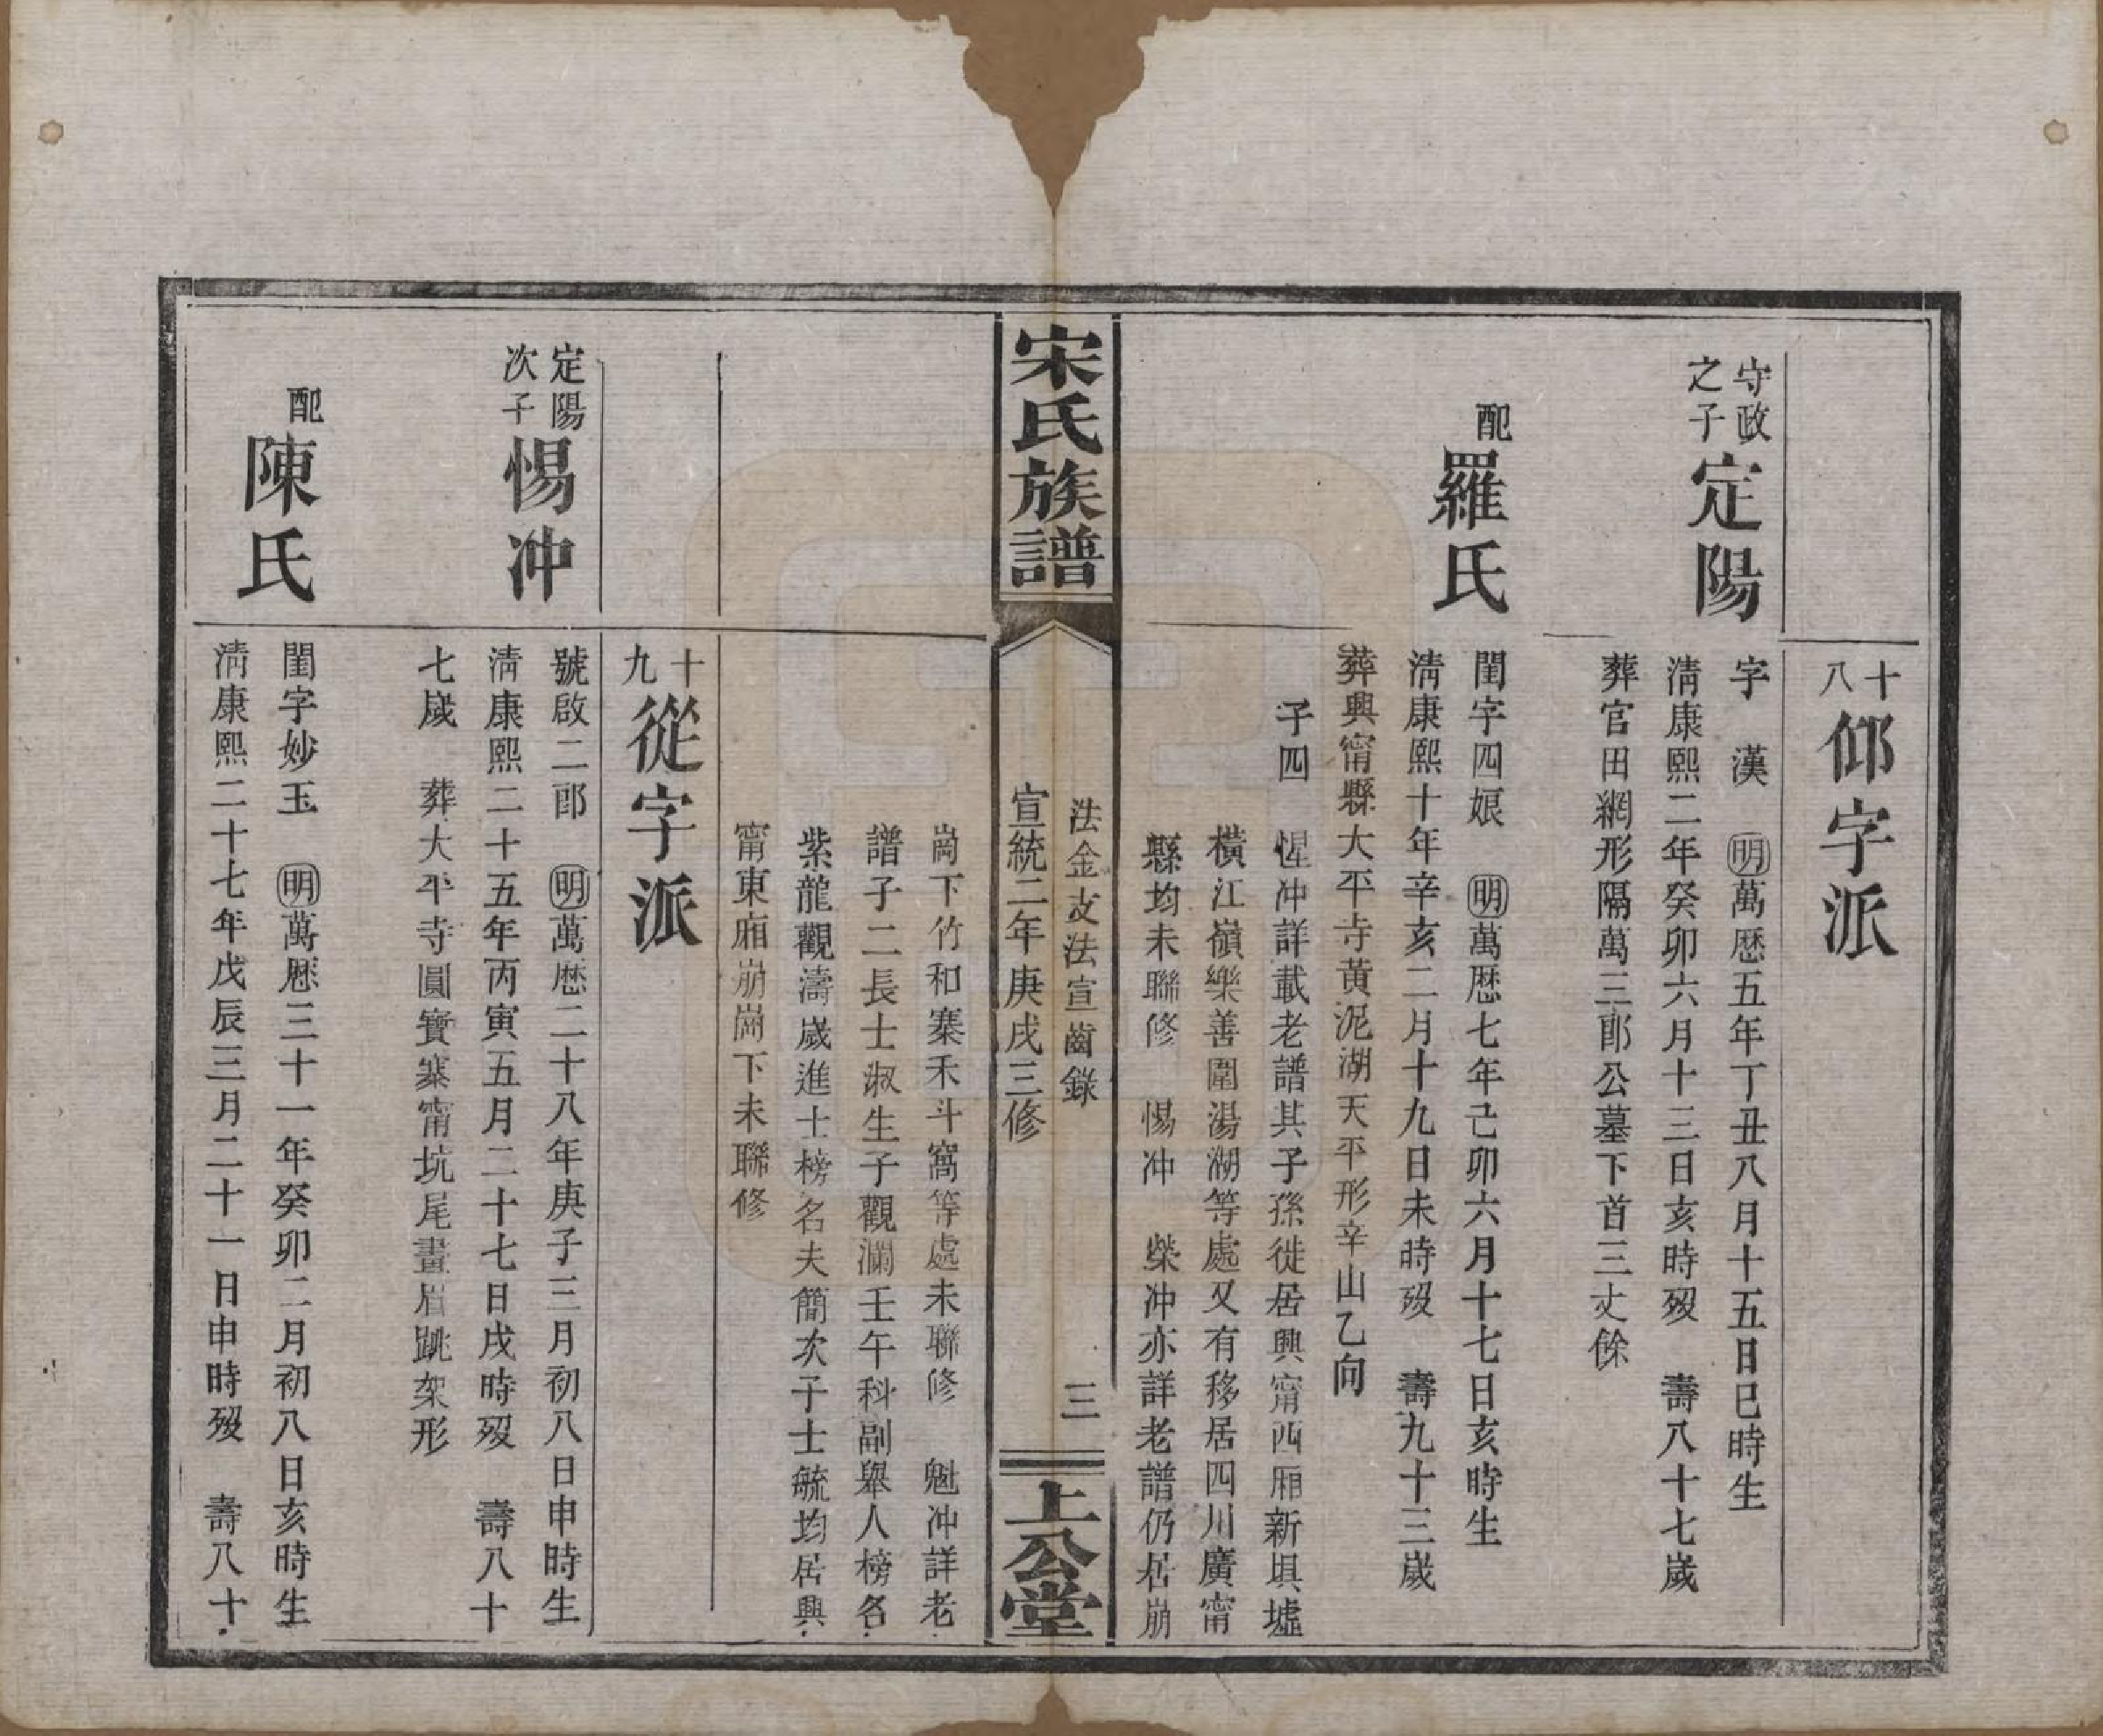 十八仰字派
守政之子定陽
字 漢 明萬歷五年丁丑八月十五日巳時生
清康熙二年癸卯六月十三日亥時歿 壽八十七歲
葬官田網形隔萬三郎公墓下首三丈餘
配羅氏
閨字四娘 明萬歷七年己卯六月十七日亥時生
清康熙十年辛亥二月十九日未時歿 壽九十三歲
葬興甯縣大平寺黃泥湖天平形辛山乙向
子四 惺冲詳載老譜其子孫徙居興甯西廂新埧墟
橫江嶺樂善圍湯湖等處又有移居四川廣甯
縣均未聯修 惕冲 榮冲亦詳老譜仍居崩
宋氏族譜
法金支法宣齒錄
三
宣統二年庚戌三修
上公堂
崗下竹和寨禾斗窩等處未聯修 魁冲詳老
譜子二長士淑生子觀瀾壬午科副舉人榜名
紫龍觀濤歲進士榜名夫簡次子士毓均居興
甯東廂崩崗下未聯修
十九從字派
定陽次子惕冲
號啟二郎 明萬歷二十八年庚子三月初八日申時生
清康熙二十五年丙寅五月二十七日戌時歿 壽八十
七歲 葬大平寺圓寶寨甯坑尾畫眉跳架形
配陳氏
閨字妙玉 明萬歷三十一年癸卯二月初八日亥時生
清康熙二十七年戊辰三月二十一日申時歿 壽八十